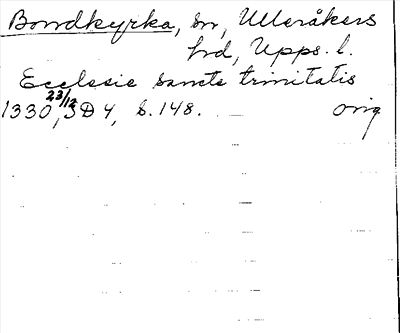 Bondkyrka, sn, Ulleråkers
hrd, Upps. l.
Ecclesie sancte trinitatis
1330 23/12, SD 4, s. 148. orig